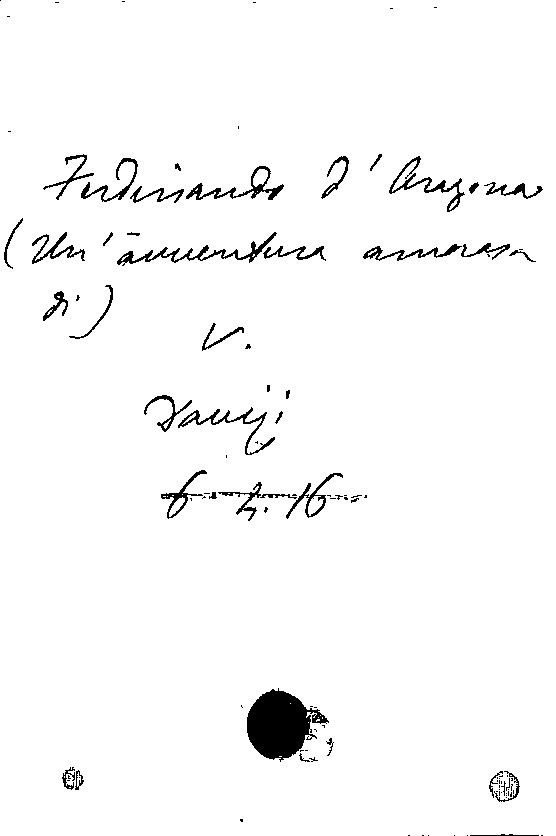 Ferdinando d'Aragona
(Un'avventura amorosa
di)
V.
6.2.16